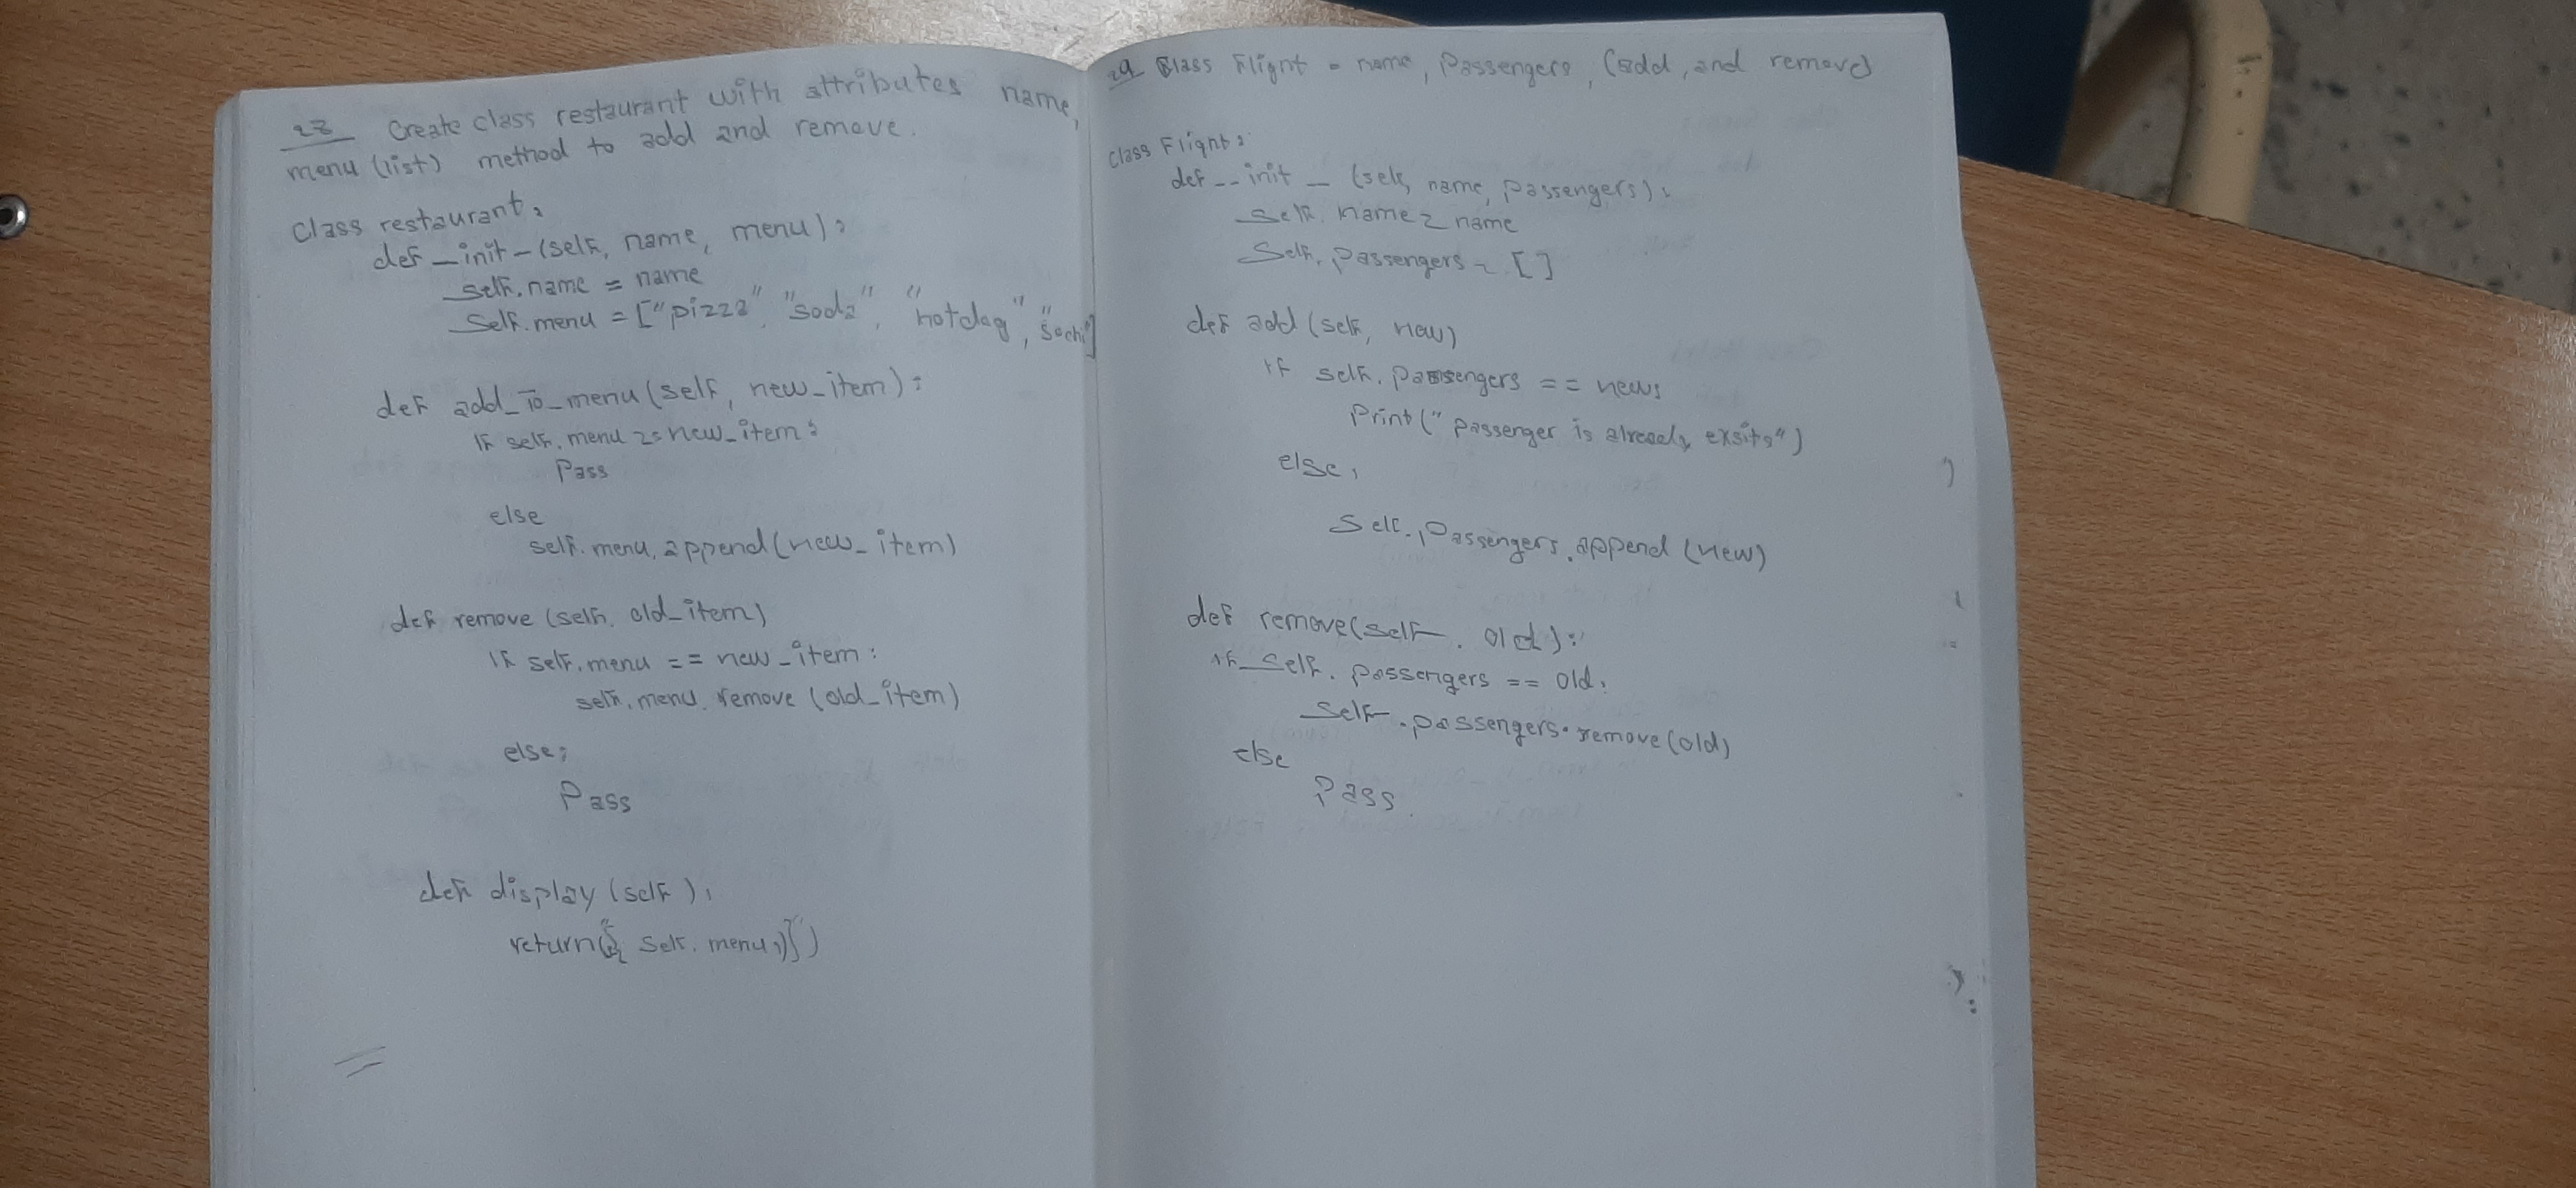 28 Create class restaurant with attributes name,
menu (list) method to add and remove.
Class restaurant:
def _init_ (self, name, menu):
self.name = name
self.menu = ["pizza", "soda", "hotdog",
def add_to_menu (self, new_item):
if self.menu == new_item:
Pass
else
self.menu.append(new_item)
def remove (self, old_item)
if self.menu == new_item:
self.menu.remove (old_item)
else:
Pass
def display (self):
return self.menu
29 Class Flight = name, passengers, (add, and remove)
Class Flight:
def __init_ (self, name, passengers):
self.name = name
self.passengers = []
def add (self, new)
if self.passengers == new:
Print("passenger is already exsits")
else:
Self.passengers.append (new)
def remove(self. old):
if self.passengers == old:
self.passengers.remove (old)
else
Pass.